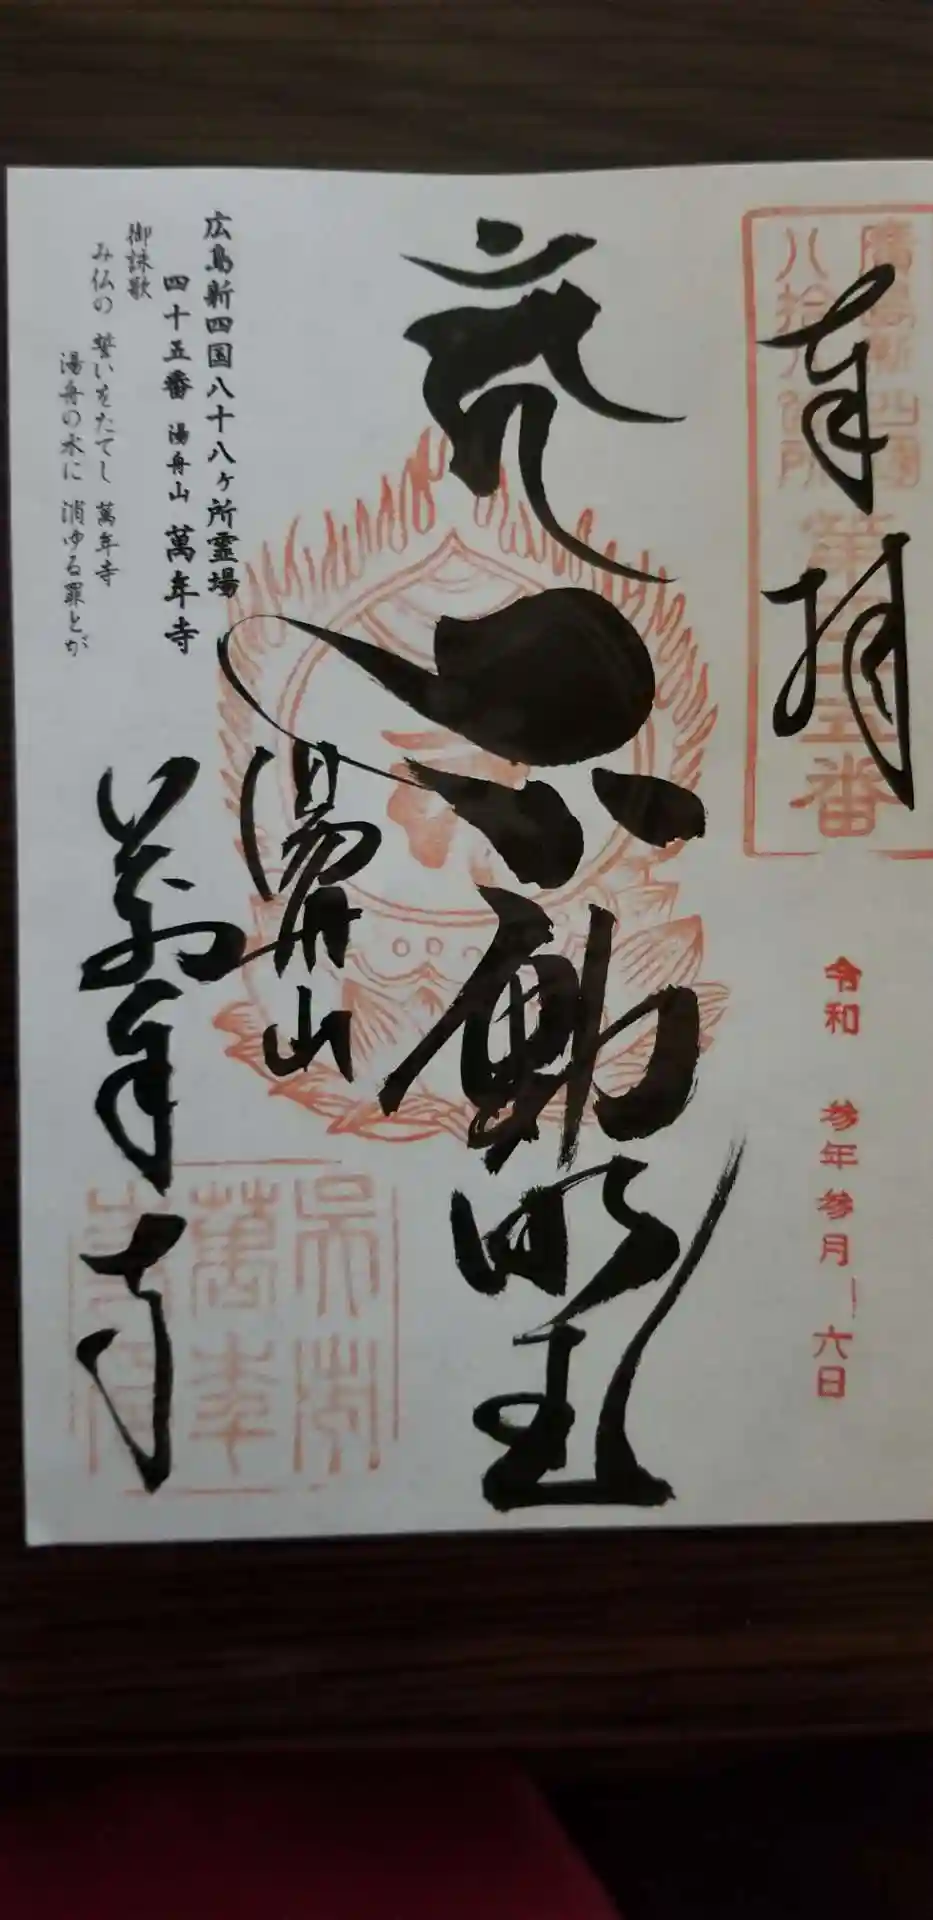 奉拝
廣島新四國
八拾八箇所
第四十五番
令和 参年参月 六日
不動明王
湯舟山
萬年寺
広島新四国八十八ヶ所霊場
四十五番 湯舟山 萬年寺
御詠歌
み仏の 誓いをたてし 萬年寺
湯舟の水に 消ゆる罪とが